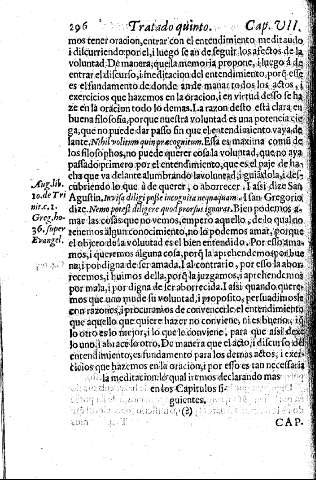 296 Tratado quinto. Cap. VII.
mos tener oracion, entrar con el entendimiento meditãdo
i discurriendo por el, i luego se an de seguir los afectos de la
voluntad. De manera, q̃ la memoria propone, i luego á de
entrar el discurso, i meditacion del entendimiento, porq̃ esse
es el fundamento de donde an de manar todos los actos, i
exercicios que hazemos en la oracion, i en virtud desso se ha
ze en la oracion todo lo demas. La razon desto está clara en
buena filosofia, porque nuestra voluntad es una potencia cie
ga, que no puede dar passo sin que el entendimiento vaya de
lante. Nihil volitum quin præcognitum. Esta es maxima comũ de
los filosofos, no puede querer cosa la voluntad, que no aya
passado primero por el entendimiento, que es el paje de ha-
cha que va delante alumbrando la volũtad, i guiãdola, i des
cubriendo lo que á de querer, o aborrecer. I assi dize San
Agustin, Invisa diligi posse incognita nequaquam. I san Gregorio
dize. Nemo potest diligere quod prorsus ignorat. Bien podemos a-
mar las cosas que no vemos, empero aquello, de lo qual no
tenemos algun conocimiento, no lo podemos amar, porque
el objecto de la voluntad es el bien entendido. Por esso ama-
mos, i queremos alguna cosa, porq̃ la aprehendemos por bue
na, i por digna de ser amada. I al contrario, por esso la abor-
recemos, i huimos della, porq̃ la juzgamos, i aprehendemos
por mala, i por digna de ser aborrecida. I assi quando quere-
mos que uno mude su voluntad, i proposito, persuadimoslo
con razones, i procuramos de convencerle el entendimiento
que aquello que quiere hazer no conviene, ni es bueno, i q̃
lo otro es lo mejor, i lo que le conviene, para que assi dexe
lo uno, i abrace lo otro. De manera que el acto, i discurso del
entendimiento, es fundamento para los demas actos, i exer-
cicios que hazemos en la oracion, i por esso es tan necessaria
la meditacion: lo qual iremos declarando mas
en los Capitulos si-
guientes.
(?)
CAP.
Aug. lib.
10. de Tri
nit. c. 1.
Greg. ho.
36. super
Evangel.